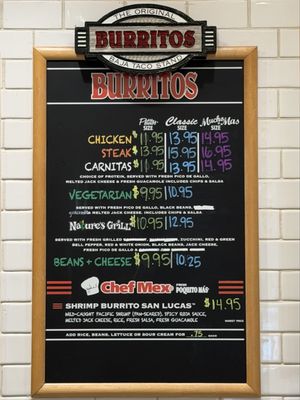 THE ORIGINAL
BURRITOS
BAJA TACO STAND
BURRITOS
SIZE Classic SIZE Mucho Mas SIZE
CHICKEN $11.95 13.95 14.95
STEAK $13.95 15.95 16.95
CARNITAS $11.95 13.95 14.95
CHOICE OF PROTEIN, SERVED WITH FRESH PICO DE GALLO,
MELTED JACK CHEESE & FRESH GUACAMOLE INCLUDES CHIPS & SALSA
VEGETARIAN $9.95 10.95
SERVED WITH FRESH PICO DE GALLO, BLACK BEANS,
MELTED JACK CHEESE. INCLUDES CHIPS & SALSA
Nature's Grill $10.95 12.95
SERVED WITH FRESH GRILLED ZUCCHINI, RED & GREEN
BELL PEPPER, RED & WHITE ONION, BLACK BEANS, JACK CHEESE,
FRESH PICO DE GALLO. INCLUDES CHIPS & SALSA
BEANS + CHEESE $9.95 10.25
Chef Mex FROM POQUITO MÁS
SHRIMP BURRITO SAN LUCAS $14.95
WILD-CAUGHT PACIFIC SHRIMP (PAN-SEARED), SPICY BAJA SAUCE,
MELTED JACK CHEESE, RICE, FRESH SALSA, FRESH GUACAMOLE
ADD RICE, BEANS, LETTUCE OR SOUR CREAM FOR .75 EACH